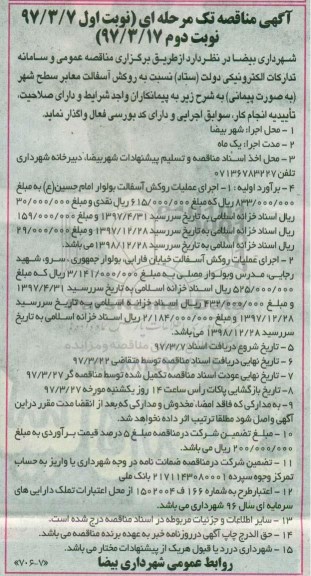 آگهی مناقصه تک مرحله ای (نوبت اول ۹۷/۳/۷
نوبت دوم ۹۷/۳/۱۷)
شهرداری بیضا در نظر دارد از طریق برگزاری مناقصه عمومی و سامانه
تدارکات الکترونیکی دولت (ستاد) نسبت به روکش آسفالت معابر سطح شهر
(به صورت پیمانی) به شرح زیر به پیمانکاران واجد شرایط و دارای صلاحیت،
تأییدیه انجام کار، سوابق اجرایی و دارای کد بورسی فعال واگذار نماید
۱ - محل اجرا: شهر بیضا
۲ - مدت اجرا: یک ماه
۳ - محل اخذ اسناد مناقصه و تسلیم پیشنهادات شهر بیضا، دبیرخانه شهرداری
تلفن ۰۷۱۳۶۷۸۳۲۲۷
۴ - برآورد اولیه: ۱ - اجرای عملیات روکش آسفالت بولوار امام حسین(ع) به مبلغ
۸۳۳/۰۰۰/۰۰۰ ریال که مبلغ ۶۱۵/۰۰۰/۰۰۰ ریال نقدی و مبلغ ۳۰/۰۰۰/۰۰۰
ریال اسناد خزانه اسلامی به تاریخ سررسید ۱۳۹۷/۴/۳۱ و مبلغ ۱۵۹/۰۰۰/۰۰۰
ریال اسناد خزانه اسلامی به تاریخ سررسید ۱۳۹۷/۱۲/۲۸ و مبلغ ۲۹/۰۰۰/۰۰۰
ریال اسناد خزانه اسلامی به تاریخ سررسید ۱۳۹۸/۱۲/۲۸ می باشد.
۲ - اجرای عملیات روکش آسفالت خیابان فارابی، بولوار جمهوری، سرو، شهید
رجایی، مدرس و بولوار مصلی به مبلغ ۳/۱۴۱/۰۰۰/۰۰۰ ریال که مبلغ
۵۲۵/۰۰۰/۰۰۰ ریال اسناد خزانه اسلامی به تاریخ سررسید ۱۳۹۷/۴/۳۱
و مبلغ ۴۳۲/۰۰۰/۰۰۰ ریال اسناد خزانه اسلامی به تاریخ سررسید
۱۳۹۷/۱۲/۲۸ و مبلغ ۲/۱۸۴/۰۰۰/۰۰۰ ریال اسناد خزانه اسلامی به تاریخ
سررسید ۱۳۹۸/۱۲/۲۸ می باشد.
۵ - تاریخ شروع دریافت اسناد ۹۷/۳/۷
۶ - تاریخ نهایی دریافت اسناد مناقصه توسط متقاضی ۹۷/۳/۲۲
۷ - تاریخ نهایی عودت اسناد مناقصه تکمیل شده توسط مناقصه گر ۹۷/۳/۲۷
۸ - تاریخ بازگشایی پاکات رأس ساعت ۱۴ روز یکشنبه مورخه ۹۷/۳/۲۷
۹ - به مدارکی که فاقد امضا، مخدوش و مدارکی که بعد از انقضا مدت مقرر در این
آگهی واصل شود مطلقا ترتیب اثر داده نخواهد شد.
۱۰ - مبلغ تضمین شرکت در مناقصه مبلغ ۵ درصد قیمت برآوردی به مبلغ
۲۰۰/۰۰۰/۰۰۰ ریال می باشد.
۱۱ - تضمین شرکت در مناقصه ضمانت نامه در وجه شهرداری یا واریز به حساب
تمرکز وجوه سپرده ۲۱۷۱۱۴۳۰۸۰۰۰۱ بانک ملی
۱۲ - اعتبار طرح به شماره ۱۶۶ ف ۱۵۰۲۰۰۴ از محل اعتبارات تملک دارایی های
سرمایه ای سال ۹۶ شهرداری می باشد.
۱۳ - سایر اطلاعات و جزییات مربوطه در اسناد مناقصه درج شده است.
۱۴ - حق الدرج چاپ آگهی در روزنامه خبر به عهده برنده مناقصه می باشد.
۱۵ - شهرداری در رد یا قبول هر یک از پیشنهادات مختار می باشد.
روابط عمومی شهرداری بیضا
«۷۰۶۰۷»